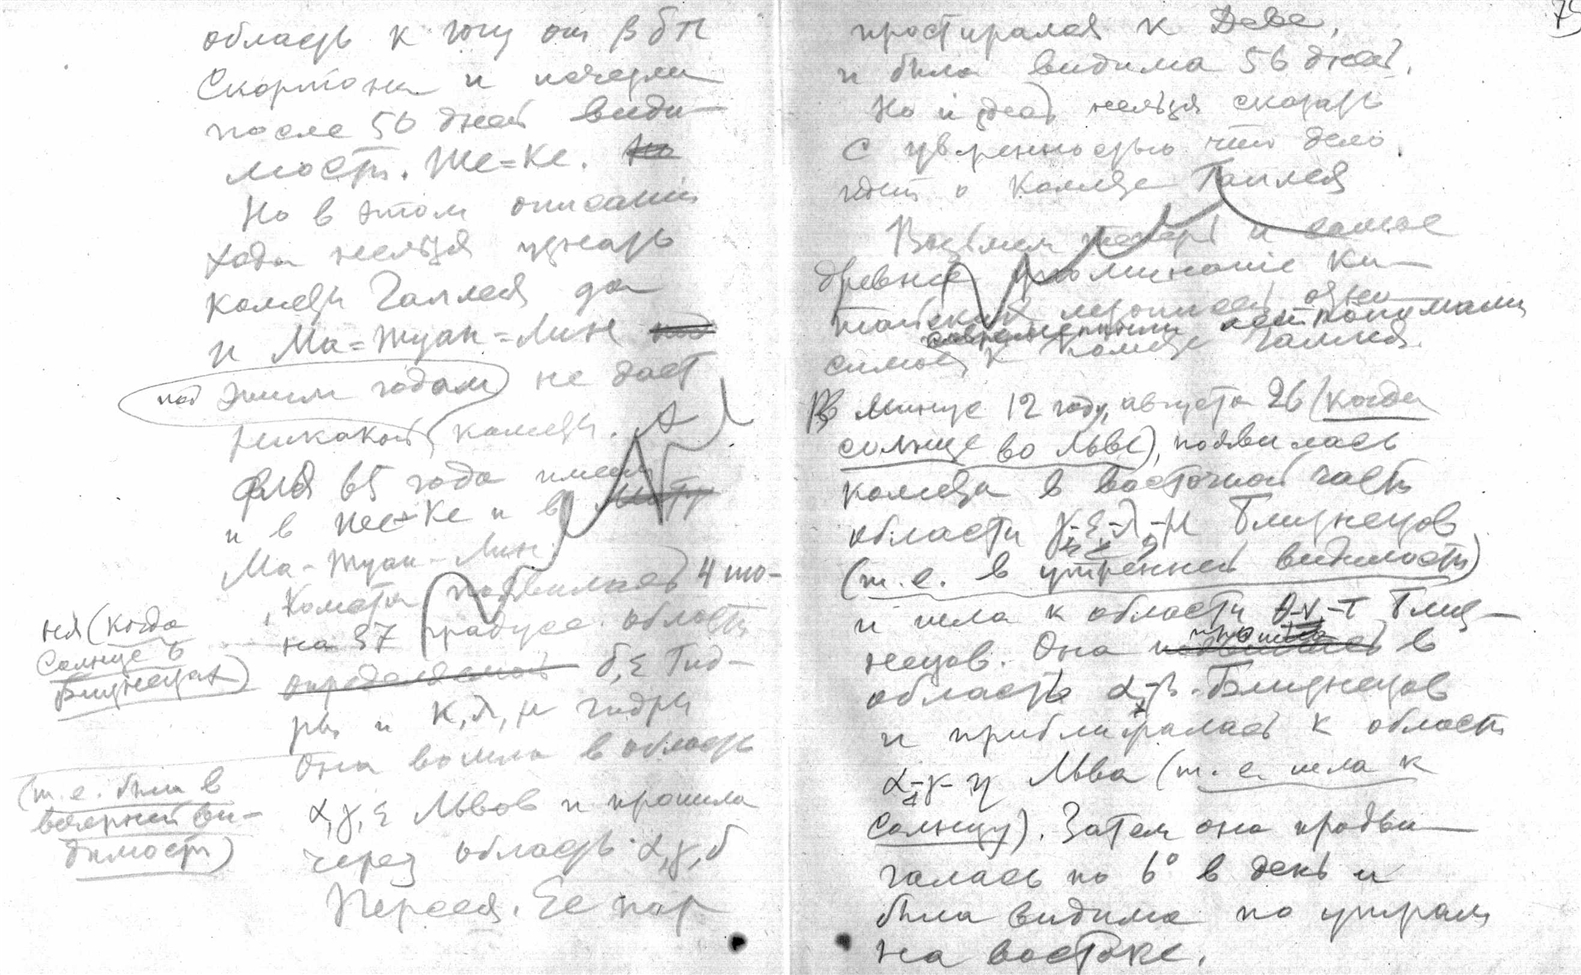 область к югу от β δ π
Скорпиона и исчезли
после 56 дней види-
мости. Ше=Ке. но
Но в этом описании
хода нельзя узнать
кометы Галлея да
и Ма=Туан=Лин
под этим годом не дает
никакой кометы. А
для 65 года имеем
и в Ше=Ке и в
Ма-Туан-Лин.
Комета появилась 4 июня (когда
солнце в
Близнецах)
на 37 градусе. область
определяемой δ, ε Гид-
ры и κ, λ, μ гидры
Она вошла в область
(т.е. была в
вечерней ви-
димости)
α, γ, ε Львов и прошла
через область α, γ, δ
Персея. Ее пар
75
простирался к Деве,
и была видима 56 дней.
Но и здесь нельзя сказать
с уверенностью что дело
идет о Комете Галлея
Возьмем теперь и самое
древнее упоминание Ки-
тайских летописей, относи-
современными астрономами
симое к комете Галлея.
В минус 12 году, августа 26 (когда
солнце во Льве), появилась
комета в восточной части
области γ-ε-λ-μ Близнецов
(т.е. в утренней видимости)
и шла к области θ-ν-τ Близ-
нецов. Она прошла в
область α-β-Близнецов
и приближалась к области
α-γ-η Льва (т.е. шла к
солнцу). Затем она продви-
галась по 6° в день и
была видима по утрам
на востоке.